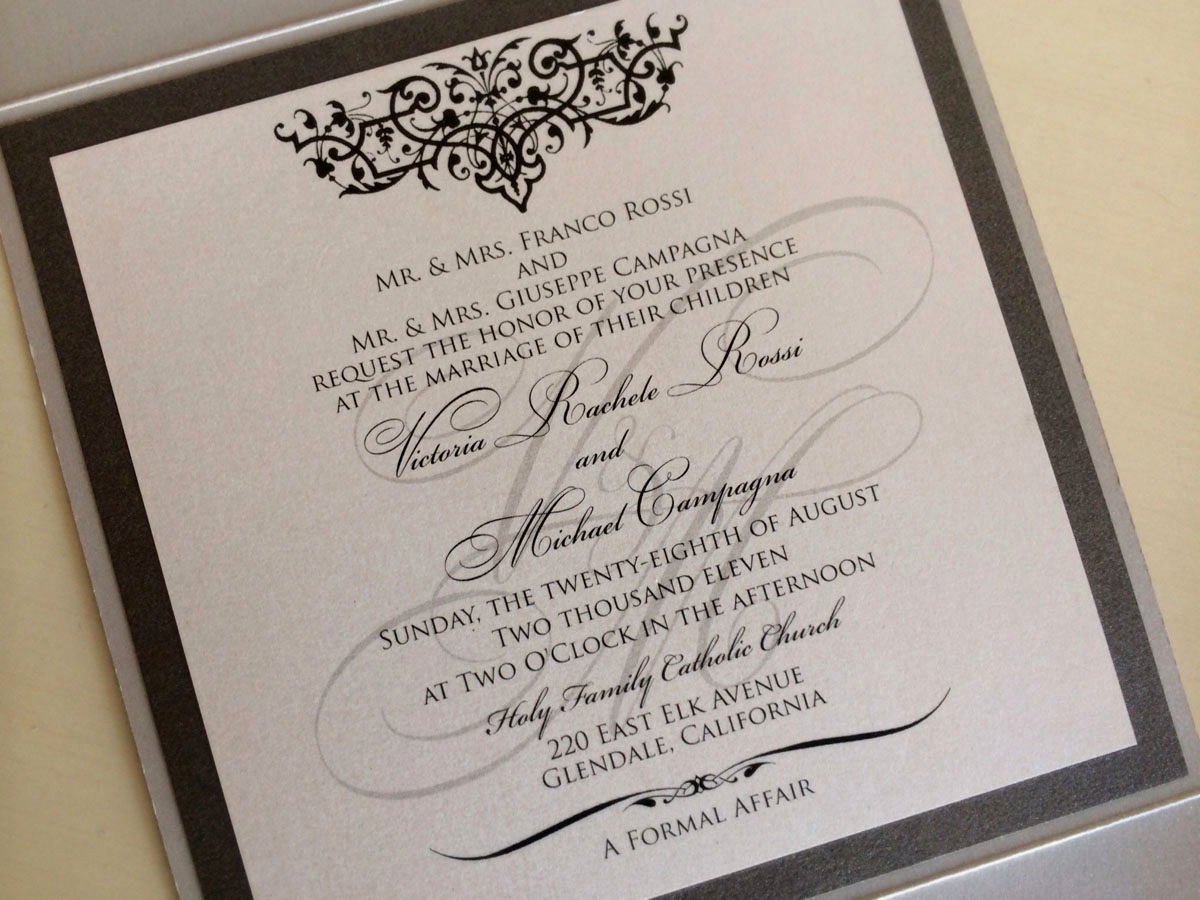 Mr. & Mrs. Franco Rossi
and
Mr. & Mrs. Giuseppe Campagna
request the honor of your presence
at the marriage of their children
Victoria Rachele Rossi
and
Michael Campagna
Sunday, the twenty-eighth of August
two thousand eleven
at Two O'Clock in the afternoon
Holy Family Catholic Church
220 East Elk Avenue
Glendale, California
A Formal Affair
V&M